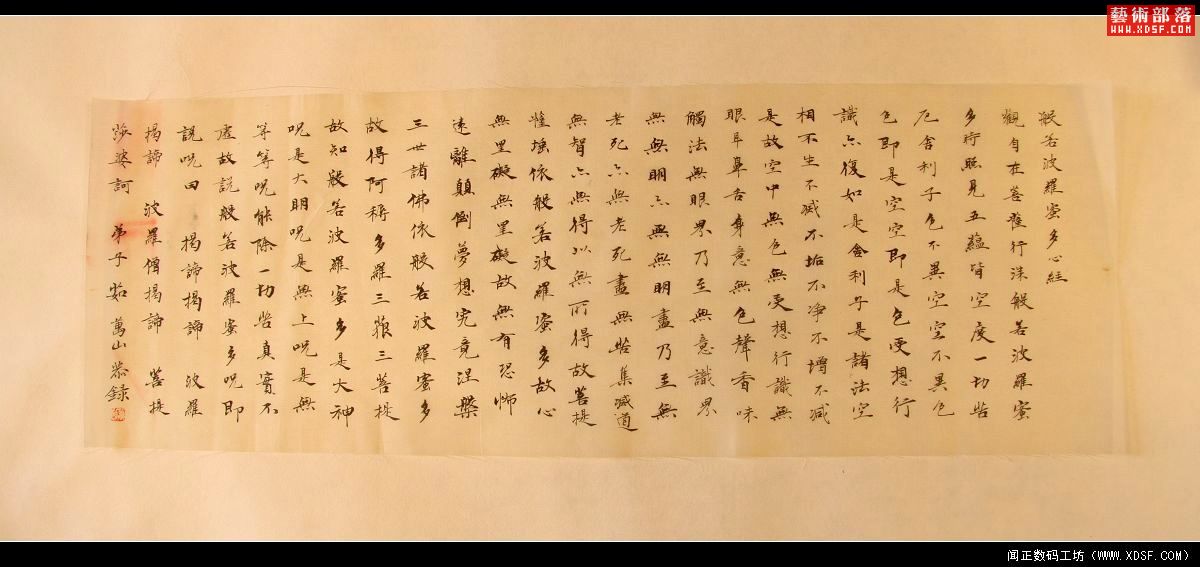 藝術部落
WWW.XDSF.COM
般若波羅蜜多心經
觀自在菩薩行深般若波羅蜜
多時照見五蘊皆空度一切苦
厄舍利子色不異空空不異色
色即是空空即是色受想行
識亦復如是舍利子是諸法空
相不生不滅不垢不淨不增不減
是故空中無色無受想行識無
眼耳鼻舌身意無色聲香味
觸法無眼界乃至無意識界
無無明亦無無明盡乃至無
老死亦無老死盡無苦集滅道
無智亦無得以無所得故菩提
薩埵依般若波羅蜜多故心
無罣礙無罣礙故無有恐怖
遠離顛倒夢想究竟涅槃
三世諸佛依般若波羅蜜多
故得阿耨多羅三藐三菩提
故知般若波羅蜜多是大神
呪是大明呪是無上呪是無
等等呪能除一切苦真實不
虛故說般若波羅蜜多呪即
說呪曰 揭諦揭諦 波羅
揭諦 波羅僧揭諦 菩提
莎婆訶 弟子茹萬山恭錄
闻正数码工坊（WWW.XDSF.COM）